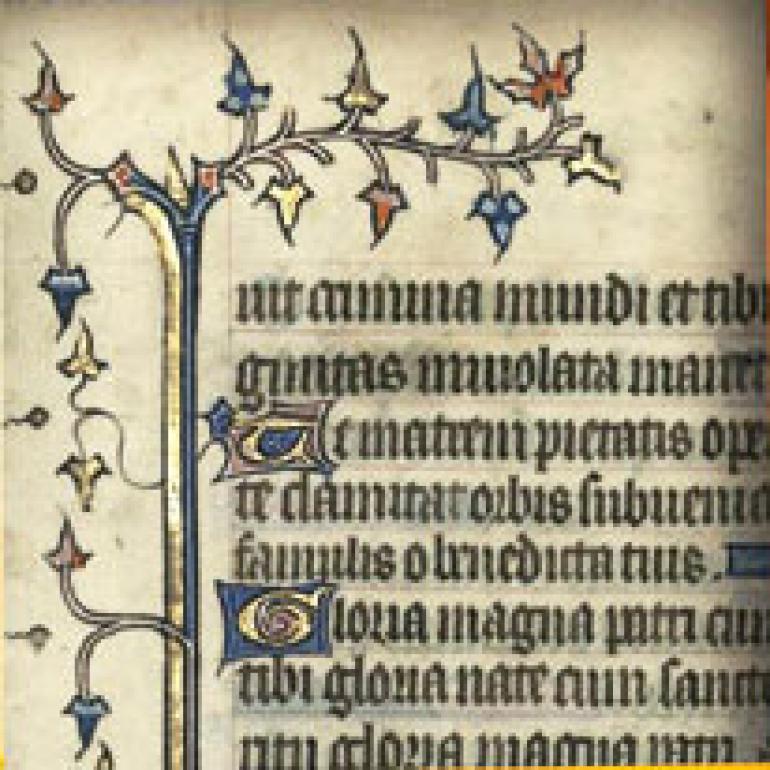 uit crimina mundi et tibi
ginitas inuiolata manet
Te matrem pietatis ope
te clamitat orbis subuenia
famulis o benedicta tuis.
Gloria magna patri cum
tibi gloria nate cum sancto
ritu gloria magna patri